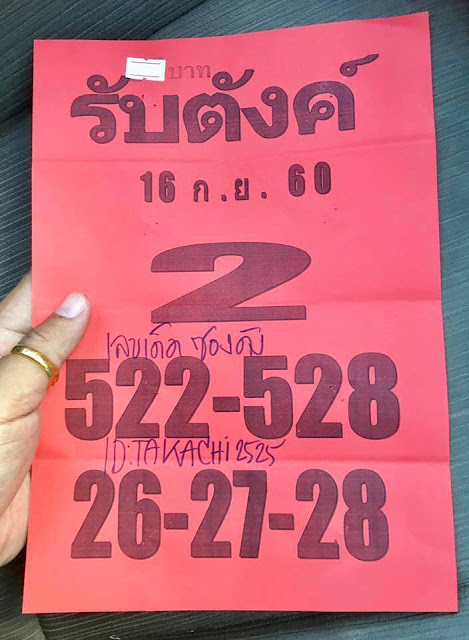 บาท
รับตังค์
16 ก.ย. 60
2
เลขเด็ด ซองดัง
522-528
ID:TAKACHi2525
26-27-28